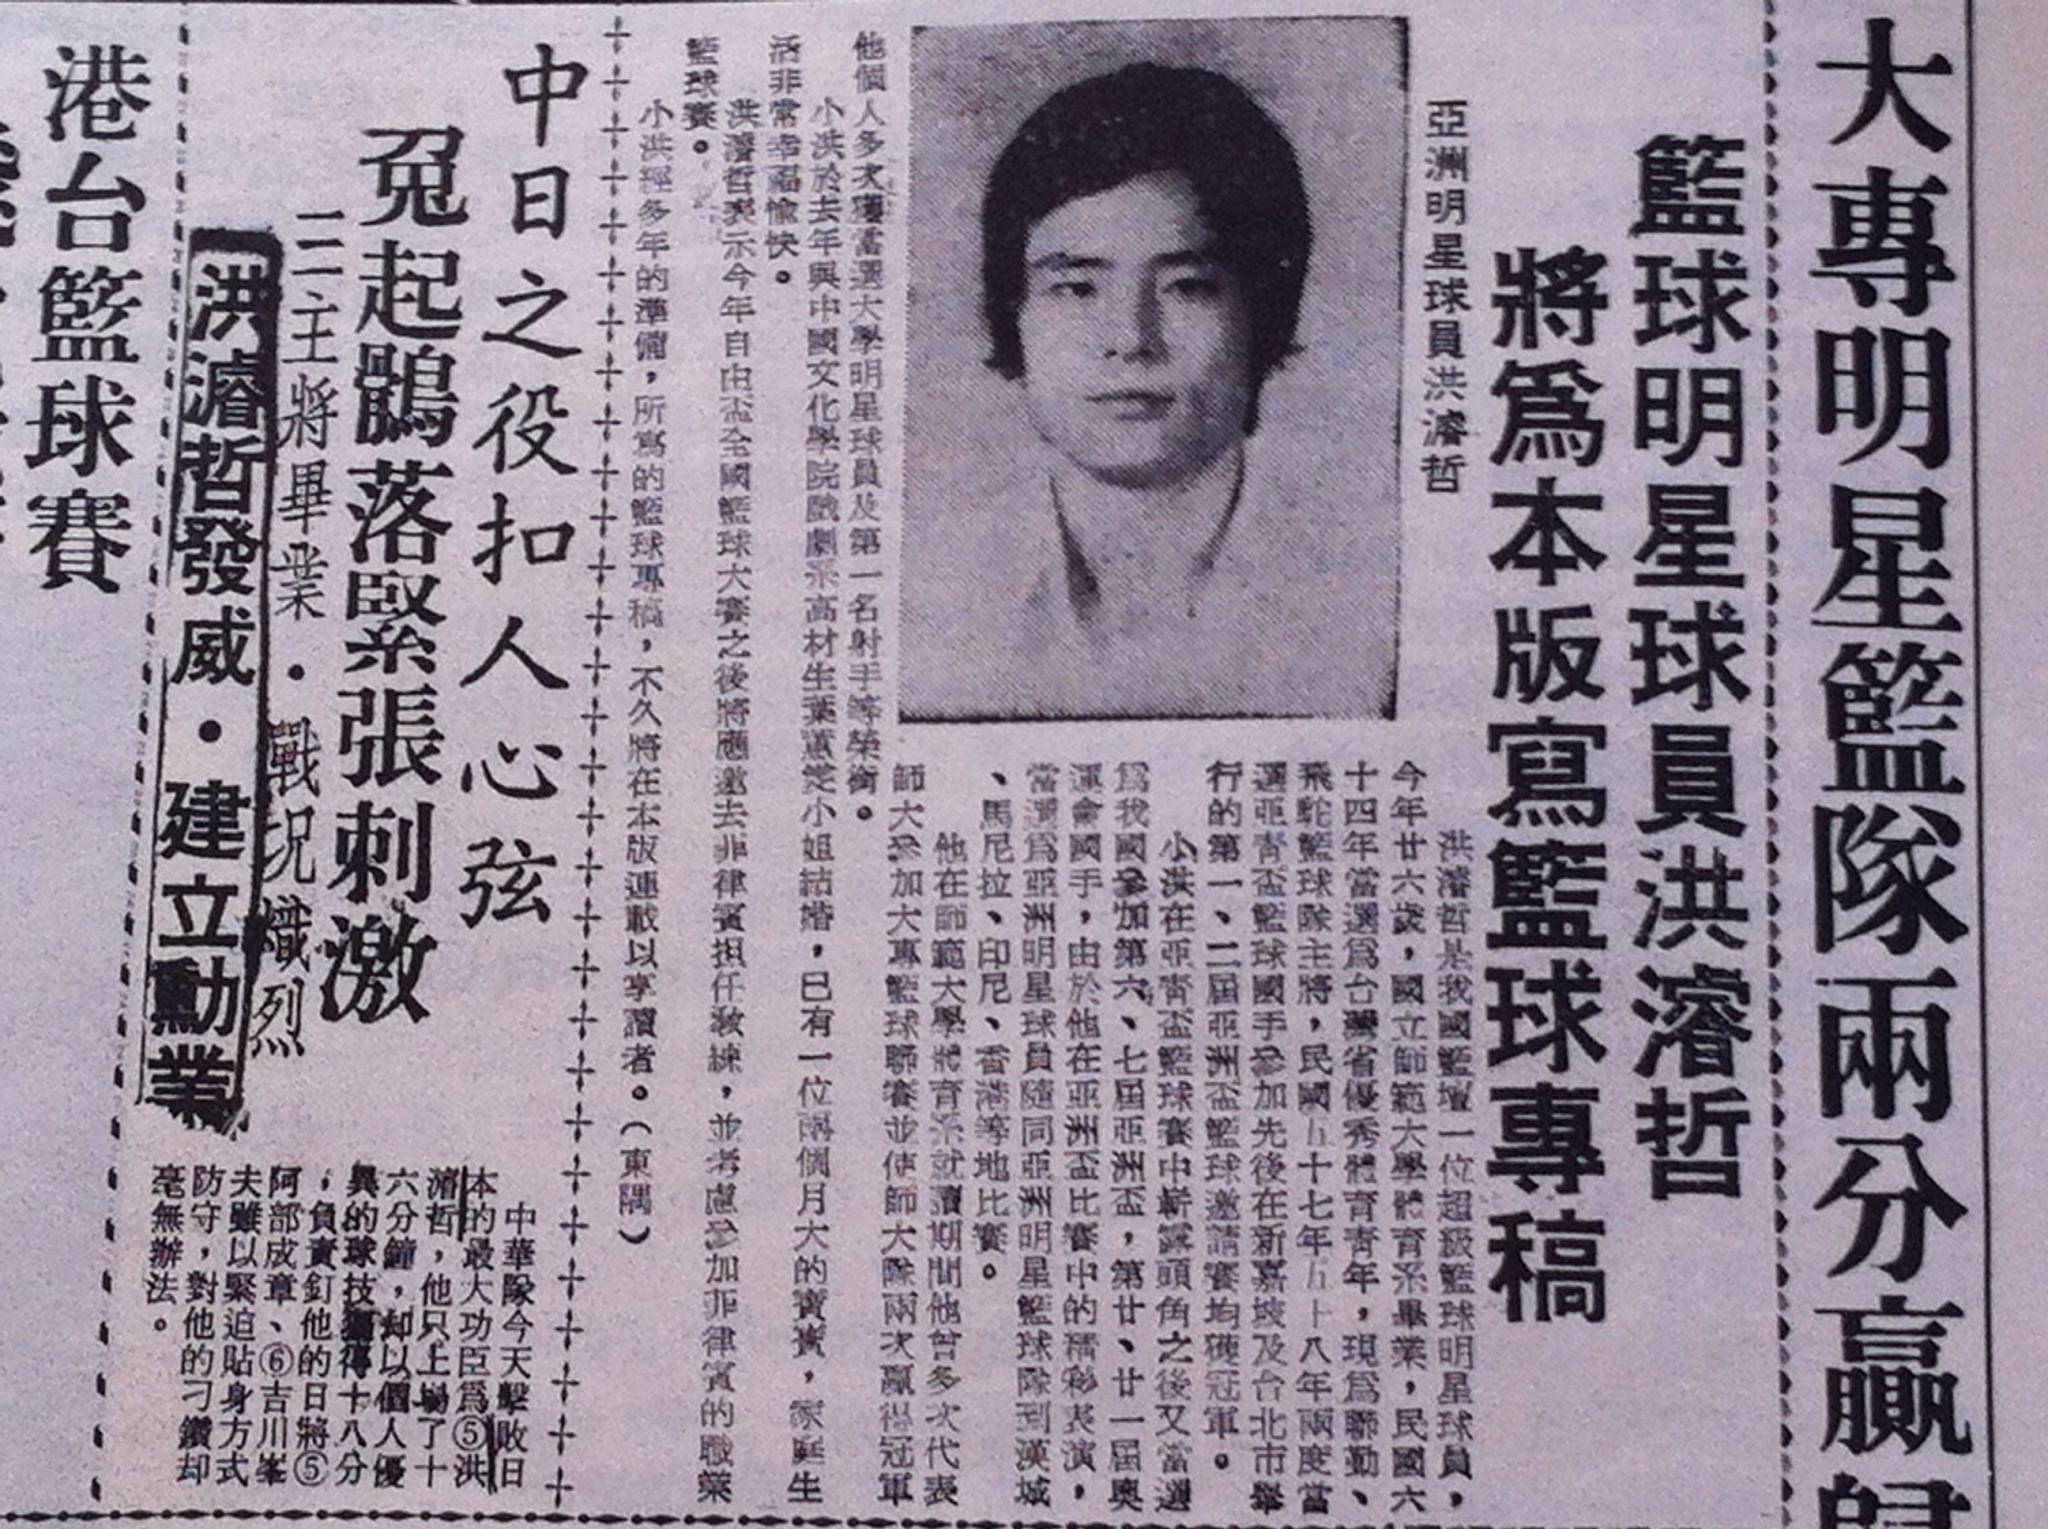 大專明星籃隊兩分贏歸
籃球明星球員洪濬哲
將為本版寫籃球專稿
亞洲明星球員洪濬哲
洪濬哲是我國籃壇一位超級籃球明星球員，
今年廿六歲，國立師範大學體育系畢業，民國六
十四年當選為台灣省優秀體育青年，現為聯勤、
飛駝籃球隊主將，民國五十七年五十八年兩度當
選亞青盃籃球國手參加先後在新嘉坡及台北市舉
行的第一、二屆亞洲盃籃球邀請賽均獲冠軍。
小洪在亞青盃籃球賽中嶄露頭角之後又當選
為我國參加第六、七屆亞洲盃，第廿、廿一屆奧
運會國手，由於他在亞洲盃比賽中的精彩表演，
當選為亞洲明星球員隨同亞洲明星籃球隊到漢城
、馬尼拉、印尼、香港等地比賽。
他在師範大學體育系就讀期間他曾多次代表
師大參加大專籃球聯賽並使師大隊兩次贏得冠軍
他個人多次獲當選大學明星球員及第一名射手等榮銜。
小洪於去年與中國文化學院戲劇系高材生葉蕙芝小姐結婚，已有一位兩個月大的寶寶，家庭生
活非常幸福愉快。
洪濬哲表示今年自由盃全國籃球大賽之後將應邀去菲律賓担任教練，並考慮參加菲律賓的職業
籃球賽。
小洪經多年的準備，所寫的籃球專稿，不久將在本版連載以享讀者。（東隅）
中日之役扣人心弦
兔起鶻落緊張刺激
三主將畢業・戰況熾烈
洪濬哲發威・建立勳業
中華隊今天擊敗日
本的最大功臣為⑤洪
濬哲，他只上場了十
六分鐘，却以個人優
異的球技獨得十八分
，負責釘他的日將⑤
阿部成章、⑥吉川峯
夫雖以緊迫貼身方式
防守，對他的刁鑽却
毫無辦法。
港台籃球賽